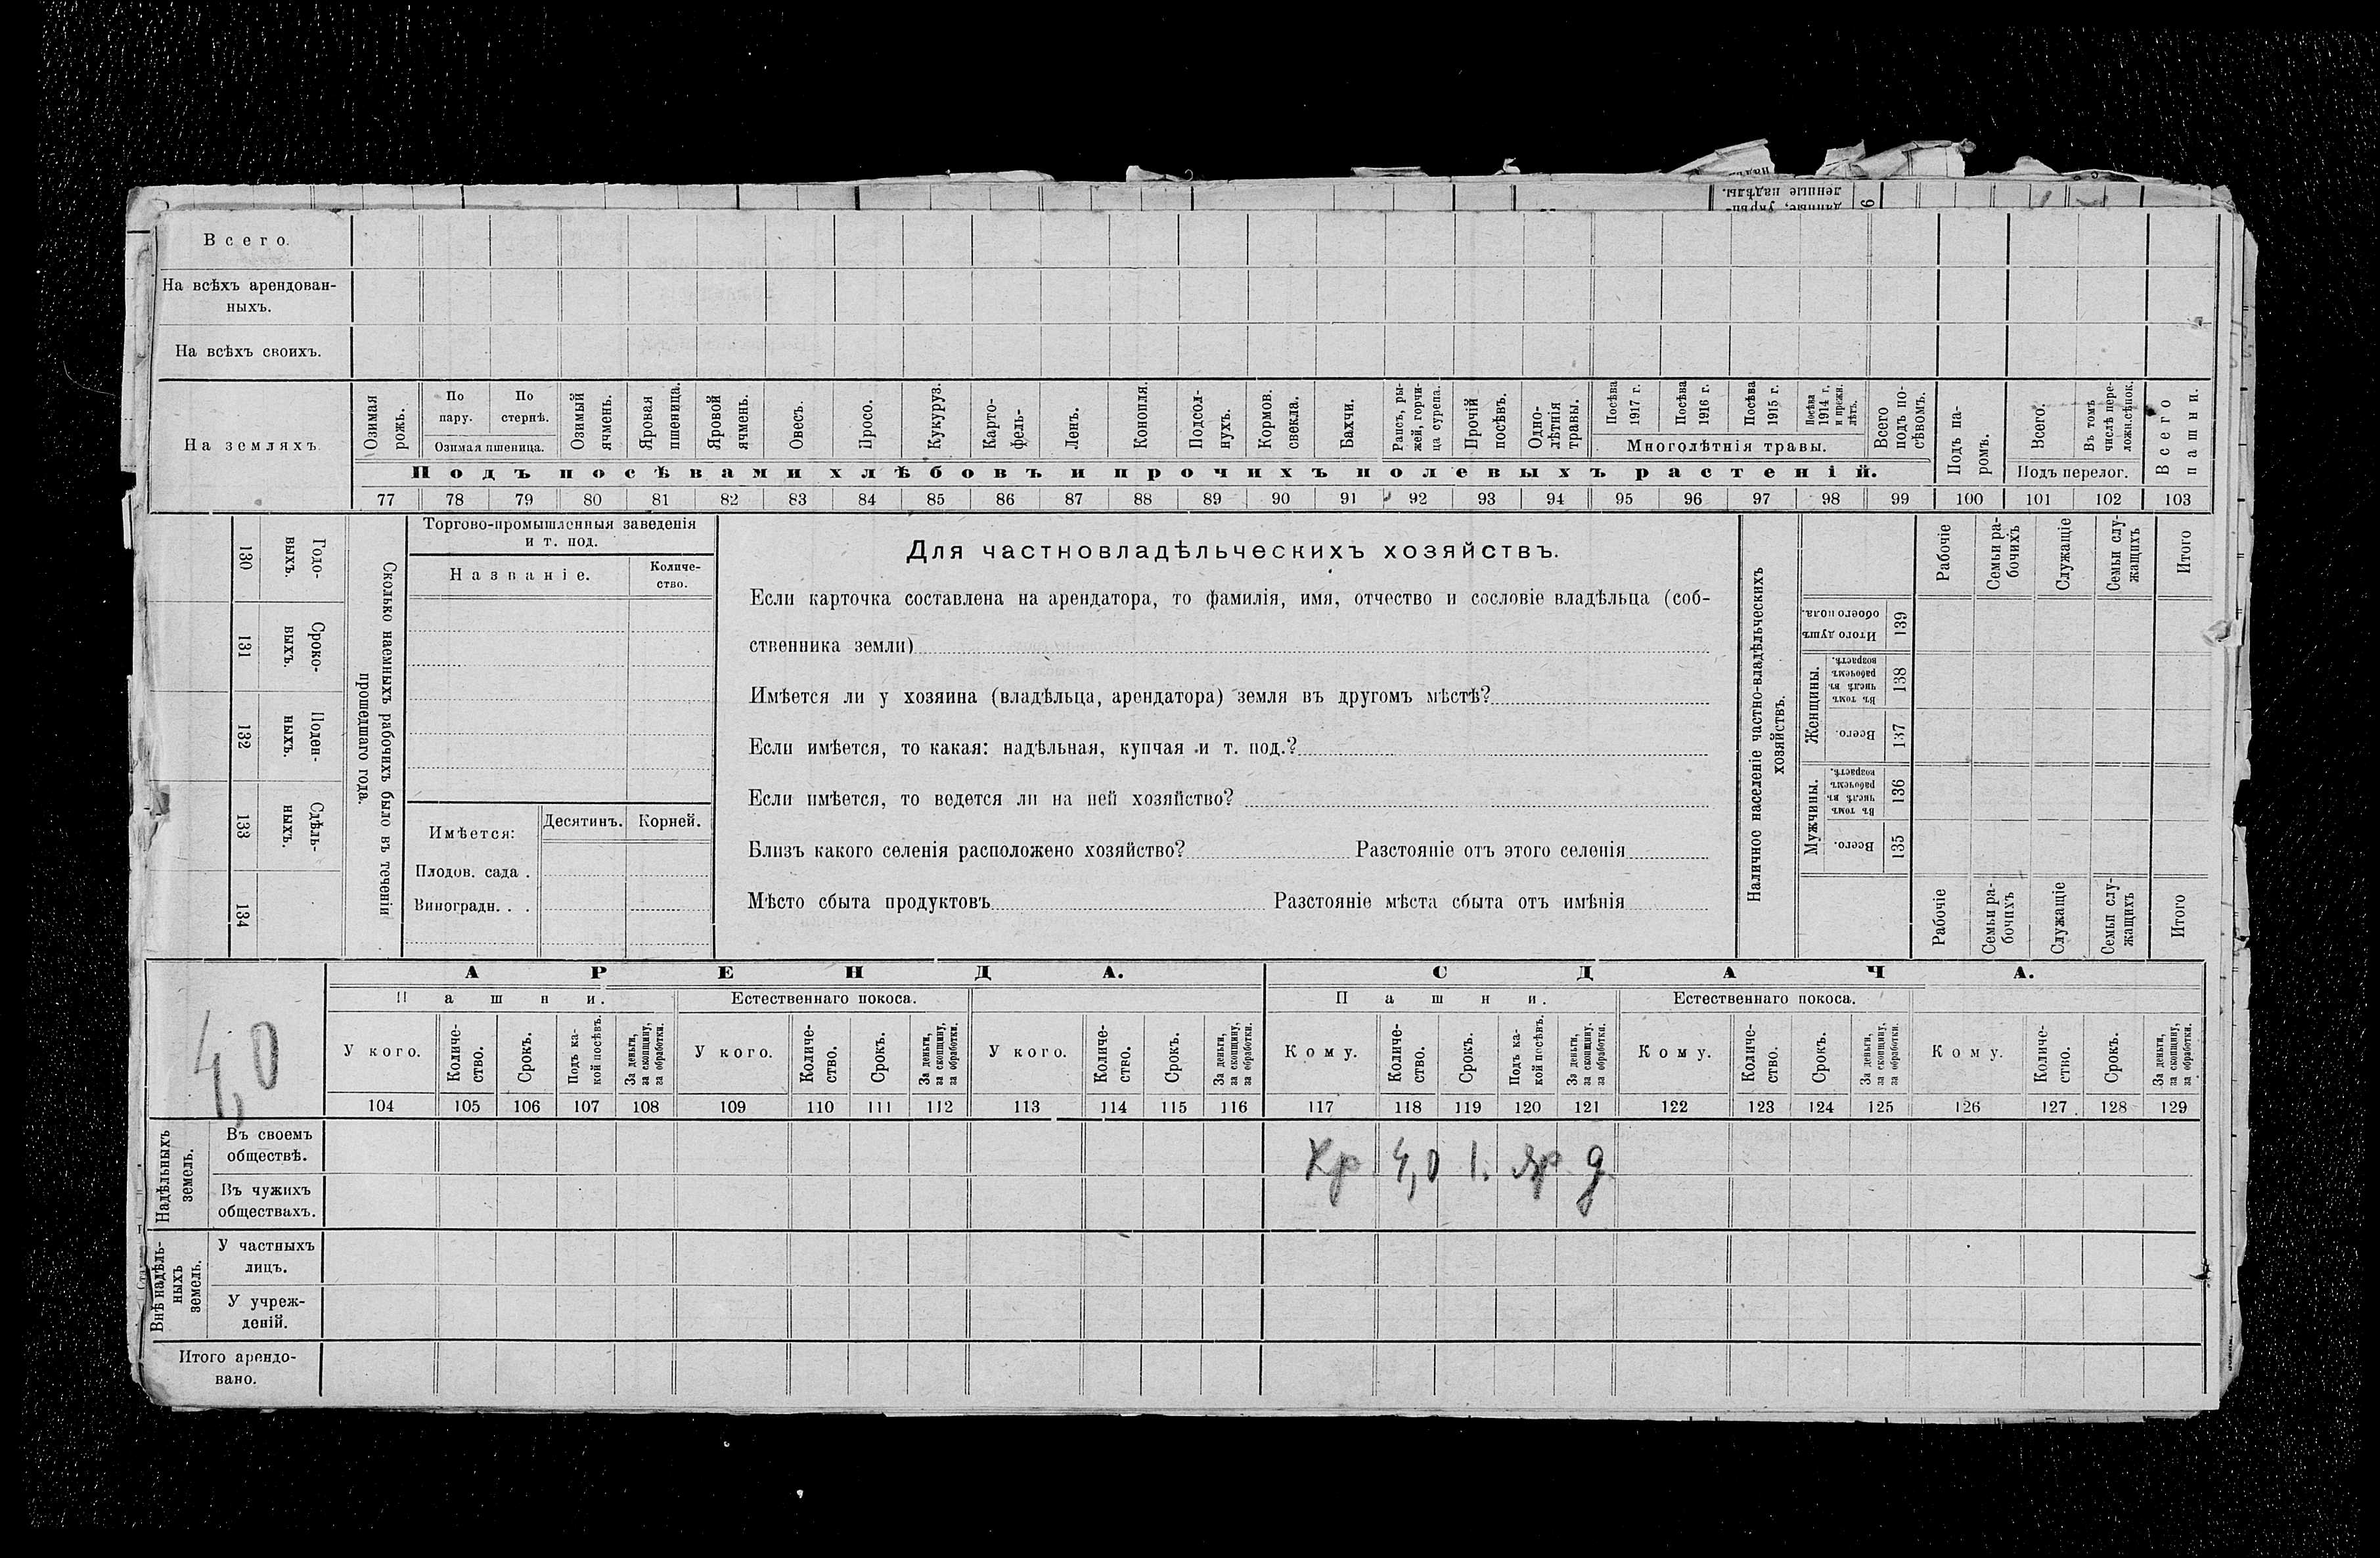 денные надѣлы.
Всего.
На всѣхъ арендован-
ныхъ.
На всѣхъ своихъ.
На земляхъ
Озимая рожь.
По пару.
По стернѣ.
Озимая пшеница.
Озимый ячмень.
Яровая пшеница.
Яровой ячмень.
Овесъ.
Просо.
Кукуруз.
Карто-
фель-
Ленъ.
Конопля.
Подсол-
нухъ.
Кормов. свекла.
Бахчи.
Рапсъ, ры-
жей, горчи-
ца сурепа.
Прочій посѣвъ.
Одно-
лѣтнія травы.
Посѣва 1917 г.
Посѣва 1916 г.
Посѣва 1915 г.
Посѣва 1914 г. и прежн. лѣтъ.
Многолѣтнія травы.
Всего подъ по-
сѣвомъ.
Подъ посѣвами хлѣбовъ и прочихъ полевыхъ растеній.
Подъ па-
ромъ.
Всего.
Въ томъ числѣ пере-
ложн. сѣнок.
Подъ перелог.
Всего пашни.
77 78 79 80 81 82 83 84 85 86 87 88 89 90 91 92 93 94 95 96 97 98 99 100 101 102 103
130 Годо-
выхъ.
131 Сроко-
выхъ.
132 Поден-
ныхъ.
133 Сдѣль-
ныхъ.
134
Сколько наемныхъ рабочихъ было въ теченіи
прошедшаго года.
Торгово-промышленныя заведенія
и т. под.
Названіе.
Количе-
ство.
Имѣется:
Десятинъ.
Корней.
Плодов. сада .
Виноградн. . .
Для частновладѣльческихъ хозяйствъ.
Если карточка составлена на арендатора, то фамилія, имя, отчество и сословіе владѣльца (соб-
ственника земли)
Имѣется ли у хозяина (владѣльца, арендатора) земля въ другомъ мѣстѣ?
Если имѣется, то какая: надѣльная, купчая и т. под.?
Если имѣется, то ведется ли на ней хозяйство?
Близъ какого селенія расположено хозяйство? Разстояніе отъ этого селенія
Мѣсто сбыта продуктовъ Разстояніе мѣста сбыта отъ имѣнія
Наличное населеніе частно-владѣльческихъ
хозяйствъ.
Рабочіе
Семьи ра-
бочихъ
Служащіе
Семьи слу-
жащихъ
Итого
Итого душъ обоего пола. 139
Женщины.
Въ томъ числѣ въ рабочемъ возрастѣ. 138
Всего. 137
Мужчины.
Въ томъ числѣ въ рабочемъ возрастѣ. 136
Всего. 135
Рабочіе
Семьи ра-
бочихъ
Служащіе
Семьи слу-
жащихъ
Итого
4,0
АРЕНДА.
СДАЧА.
Пашни.
Естественнаго покоса.
Пашни.
Естественнаго покоса.
У кого.
Количе-
ство.
Срокъ.
Подъ ка-
кой посѣвъ.
За деньги, за скопщину, за обработки.
У кого.
Количе-
ство.
Срокъ.
За деньги, за скопщину, за обработки.
У кого.
Количе-
ство.
Срокъ.
За деньги, за скопщину, за обработки.
Кому.
Количе-
ство.
Срокъ.
Подъ ка-
кой посѣвъ.
За деньги, за скопщину. за обработки.
Кому.
Количе-
ство.
Срокъ.
За деньги, за скопщину, за обработки.
Кому.
Количе-
ство.
Срокъ.
За деньги, за скопщину, за обработки.
104 105 106 107 108 109 110 111 112 113 114 115 116 117 118 119 120 121 122 123 124 125 126 127 128 129
Надѣльныхъ земель.
Въ своемъ
обществѣ.
Кр 4,0 1. яр д
Въ чужихъ
обществахъ.
Внѣ надѣль-
ныхъ земель.
У частныхъ
лицъ.
У учреж-
деній.
Итого арендо-
вано.